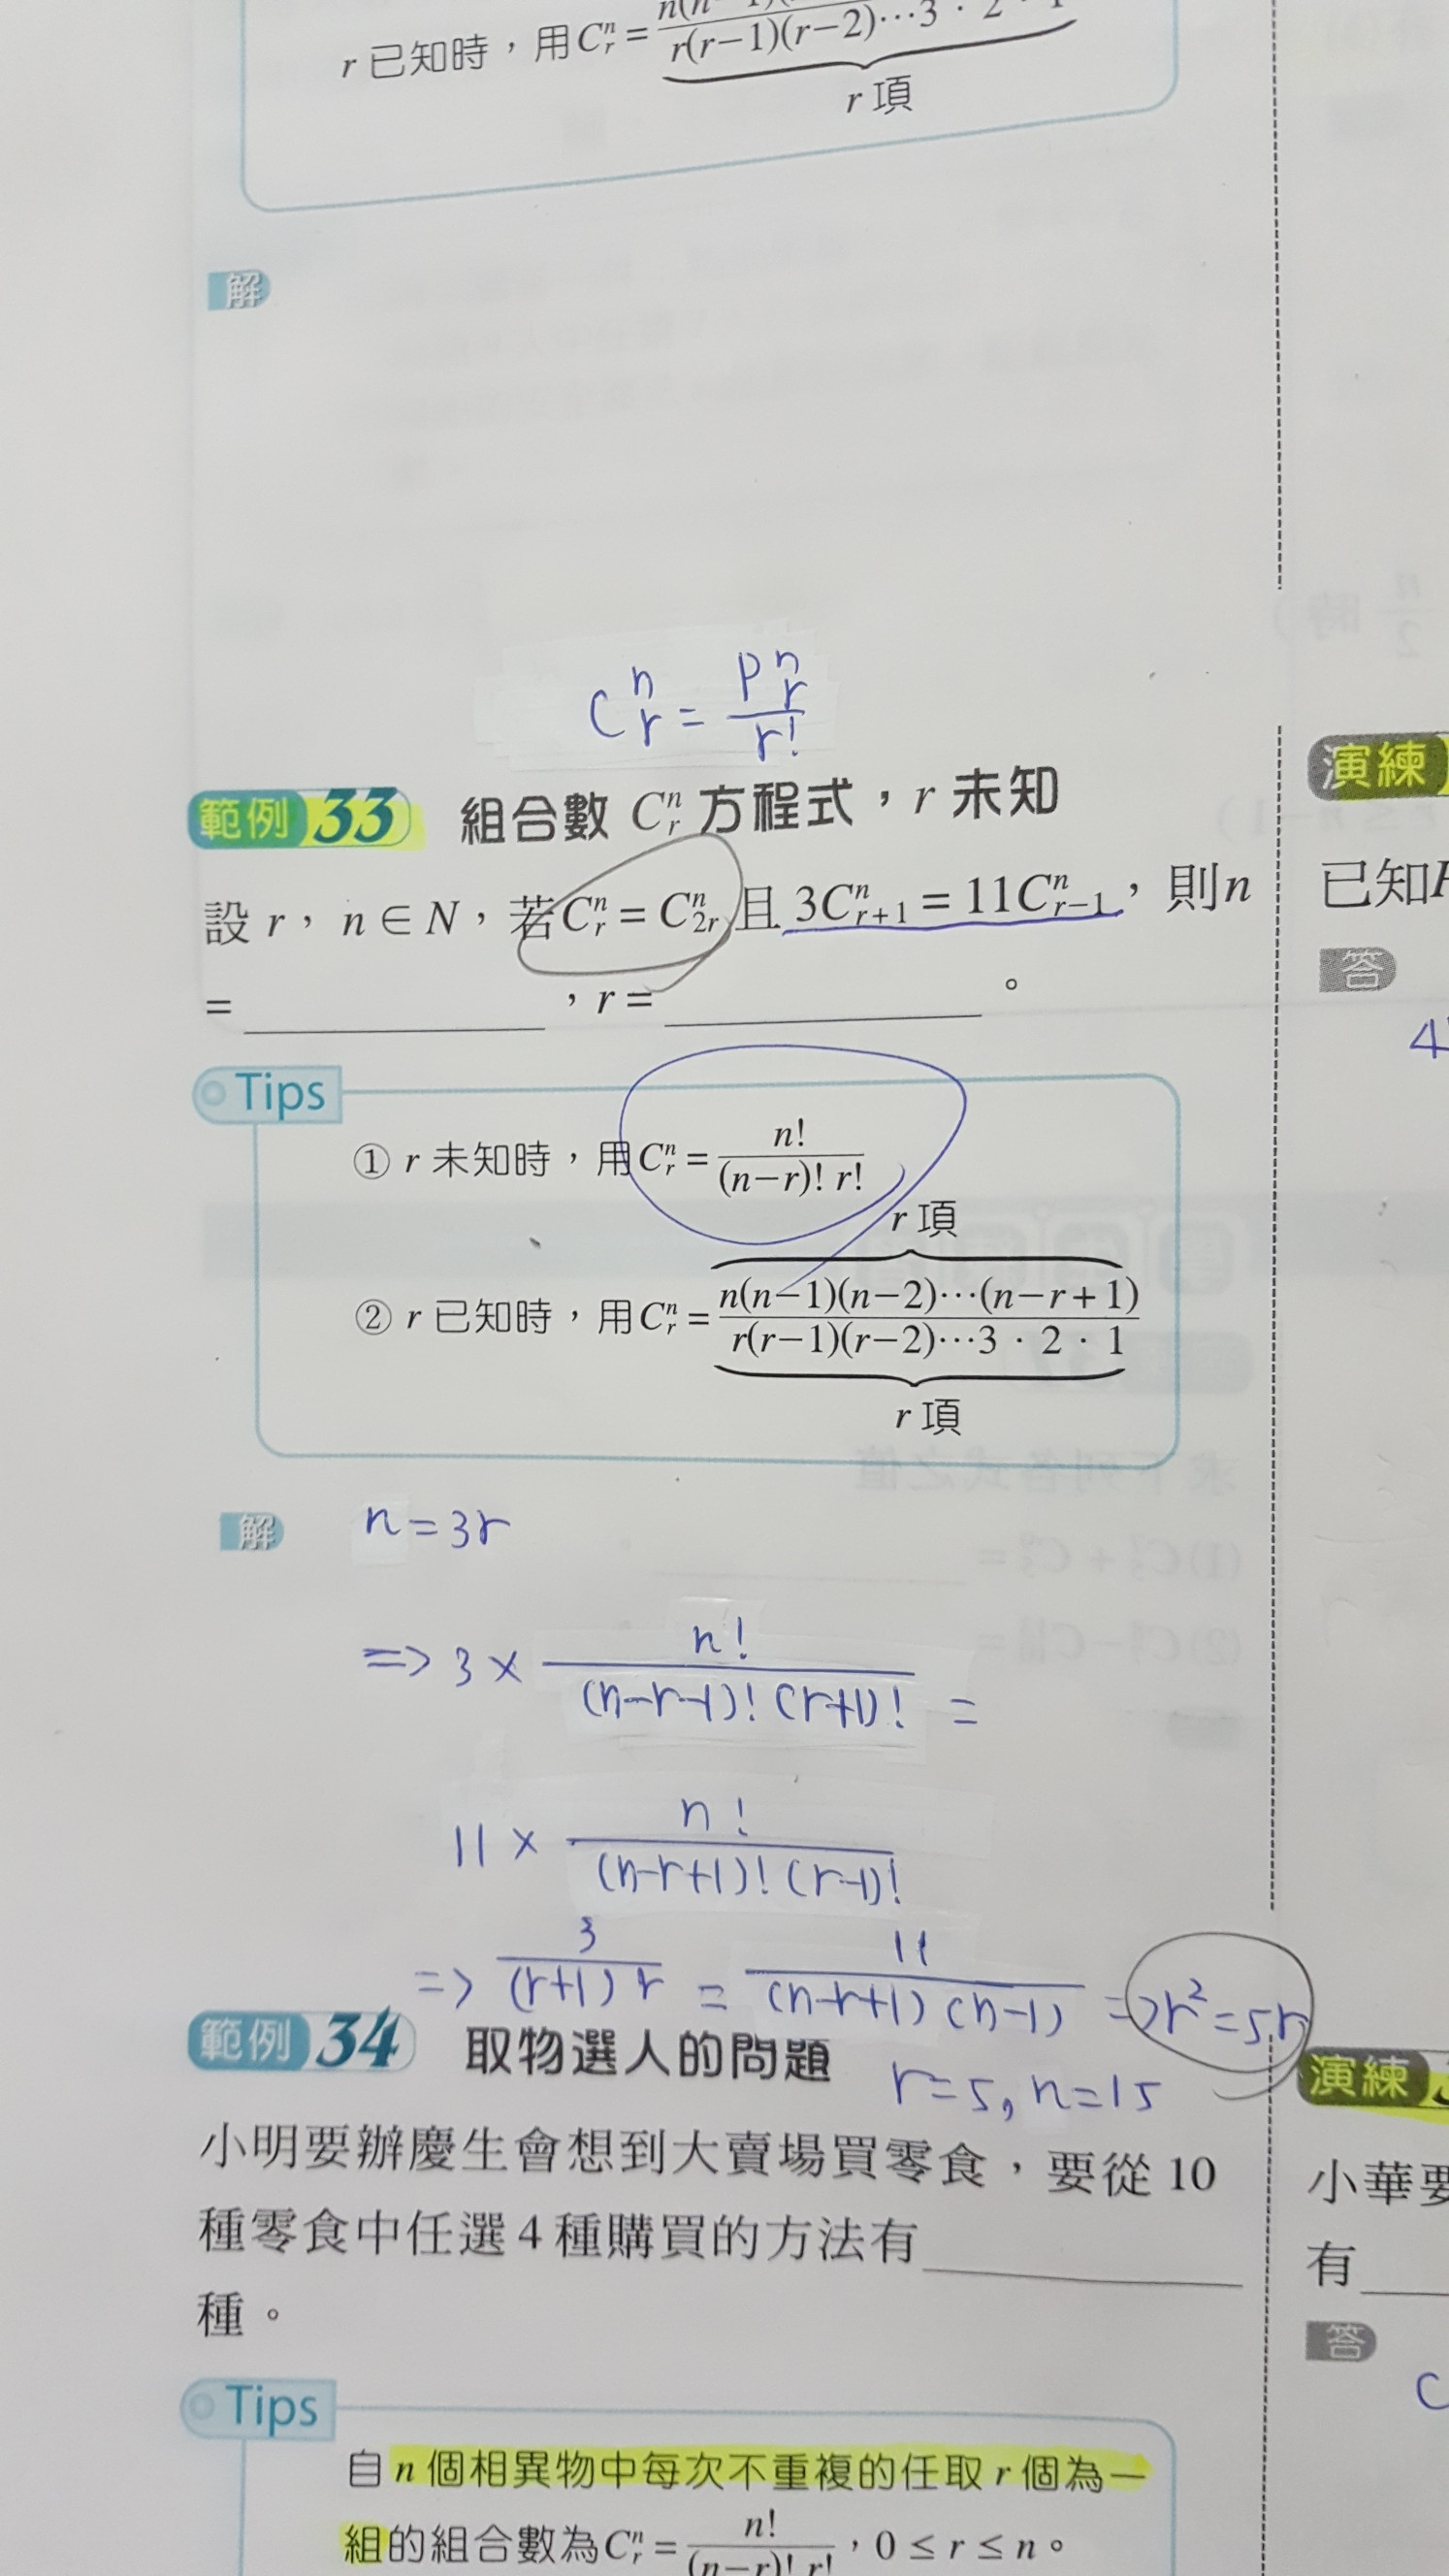 r 已知時，用 C^n_r = r(r−1)(r−2)⋯3 · 2 · 1
r 項
解
C^n_r = P^n_r / r!
範例 33 組合數 C^n_r 方程式，r 未知
設 r，n ∈ N，若 C^n_r = C^n_{2r} 且 3C^n_{r+1} = 11C^n_{r−1}，則 n
= ，r = 。
Tips
① r 未知時，用 C^n_r = n! / (n−r)! r!
r 項
② r 已知時，用 C^n_r = n(n−1)(n−2)⋯(n−r+1) / r(r−1)(r−2)⋯3 · 2 · 1
r 項
解 n = 3r
=> 3 × n! / (n−r−1)! (r+1)! =
11 × n! / (n−r+1)! (r−1)!
=> 3 / (r+1) r = 11 / (n−r+1) (n−1) => r² = 5r
r = 5, n = 15
範例 34 取物選人的問題
小明要辦慶生會想到大賣場買零食，要從 10
種零食中任選 4 種購買的方法有
種。
Tips
自 n 個相異物中每次不重複的任取 r 個為一
組的組合數為 C^n_r = n! / (n−r)! r!，0 ≤ r ≤ n。
演練
已知
答
4
演練
小華要
有
答
C